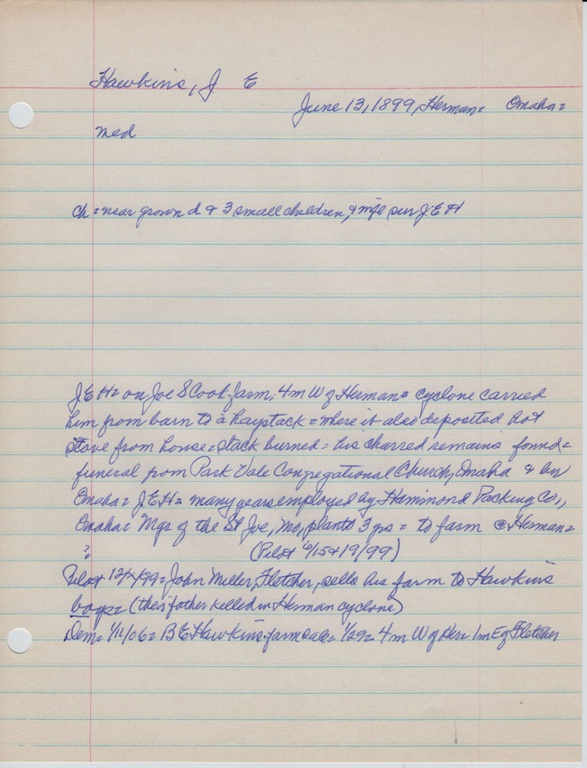 Hawkins, J E
June 13, 1899, Herman = Omaha =
med
Ch = near grown d & 3 small children, & wife sur J E H
J E H = on Joe S Cook farm, 4 m W of Herman = cyclone carried
him from barn to a haystack = where it also deposited hot
stove from house = stack burned = his charred remains found =
funeral from Park Vale Congregational Church, Omaha & bur
Omaha = J.E.H = many years employed by Hammond Packing Co.,
Omaha = Mgr of the St Joe, Mo, plant 3 yrs = to farm @ Herman =
? (Pilot 6/15 & 19/99)
Pilot 12/ /99 = John Miller, Fletcher, sells his farm to Hawkins
boys = (their father killed in Herman cyclone)
Dem = 1/11/06 = B E Hawkins farm sale = 1/29 = 4 m W of Her = 1 m E of Fletcher